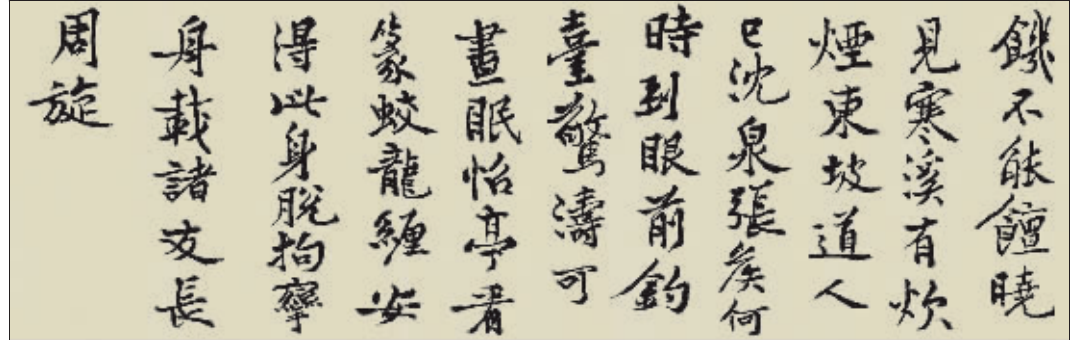 饑不能饘曉
見寒溪有炊
煙東坡道人
已沈泉張矦何
時到眼前釣
臺驚濤可
晝眠怡亭看
篆蛟龍纏安
得此身脫拘攣
舟載諸友長
周旋